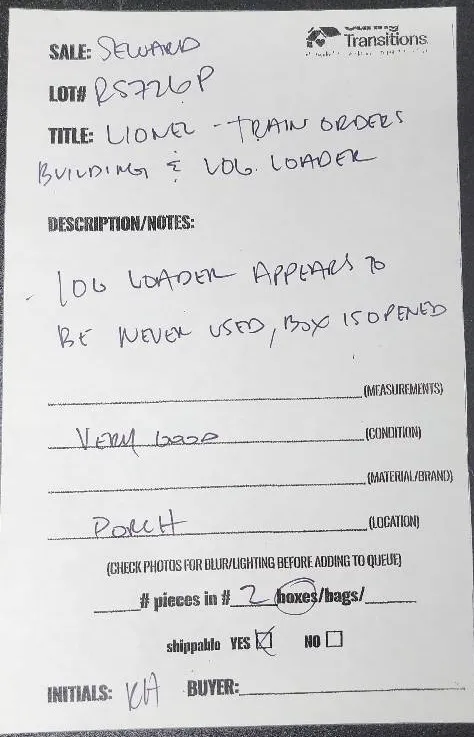 Caring
Transitions
SALE: SEWARD
LOT# RS726P
TITLE: LIONEL - TRAIN ORDERS
BUILDING & LOG LOADER
DESCRIPTION/NOTES:
- LOG LOADER APPEARS TO
BE NEVER USED, BOX IS OPENED
(MEASUREMENTS)
VERY GOOD (CONDITION)
(MATERIAL/BRAND)
PORCH (LOCATION)
(CHECK PHOTOS FOR BLUR/LIGHTING BEFORE ADDING TO QUEUE)
# pieces in # 2 boxes/bags/
shippable YES NO
INITIALS: KA BUYER: